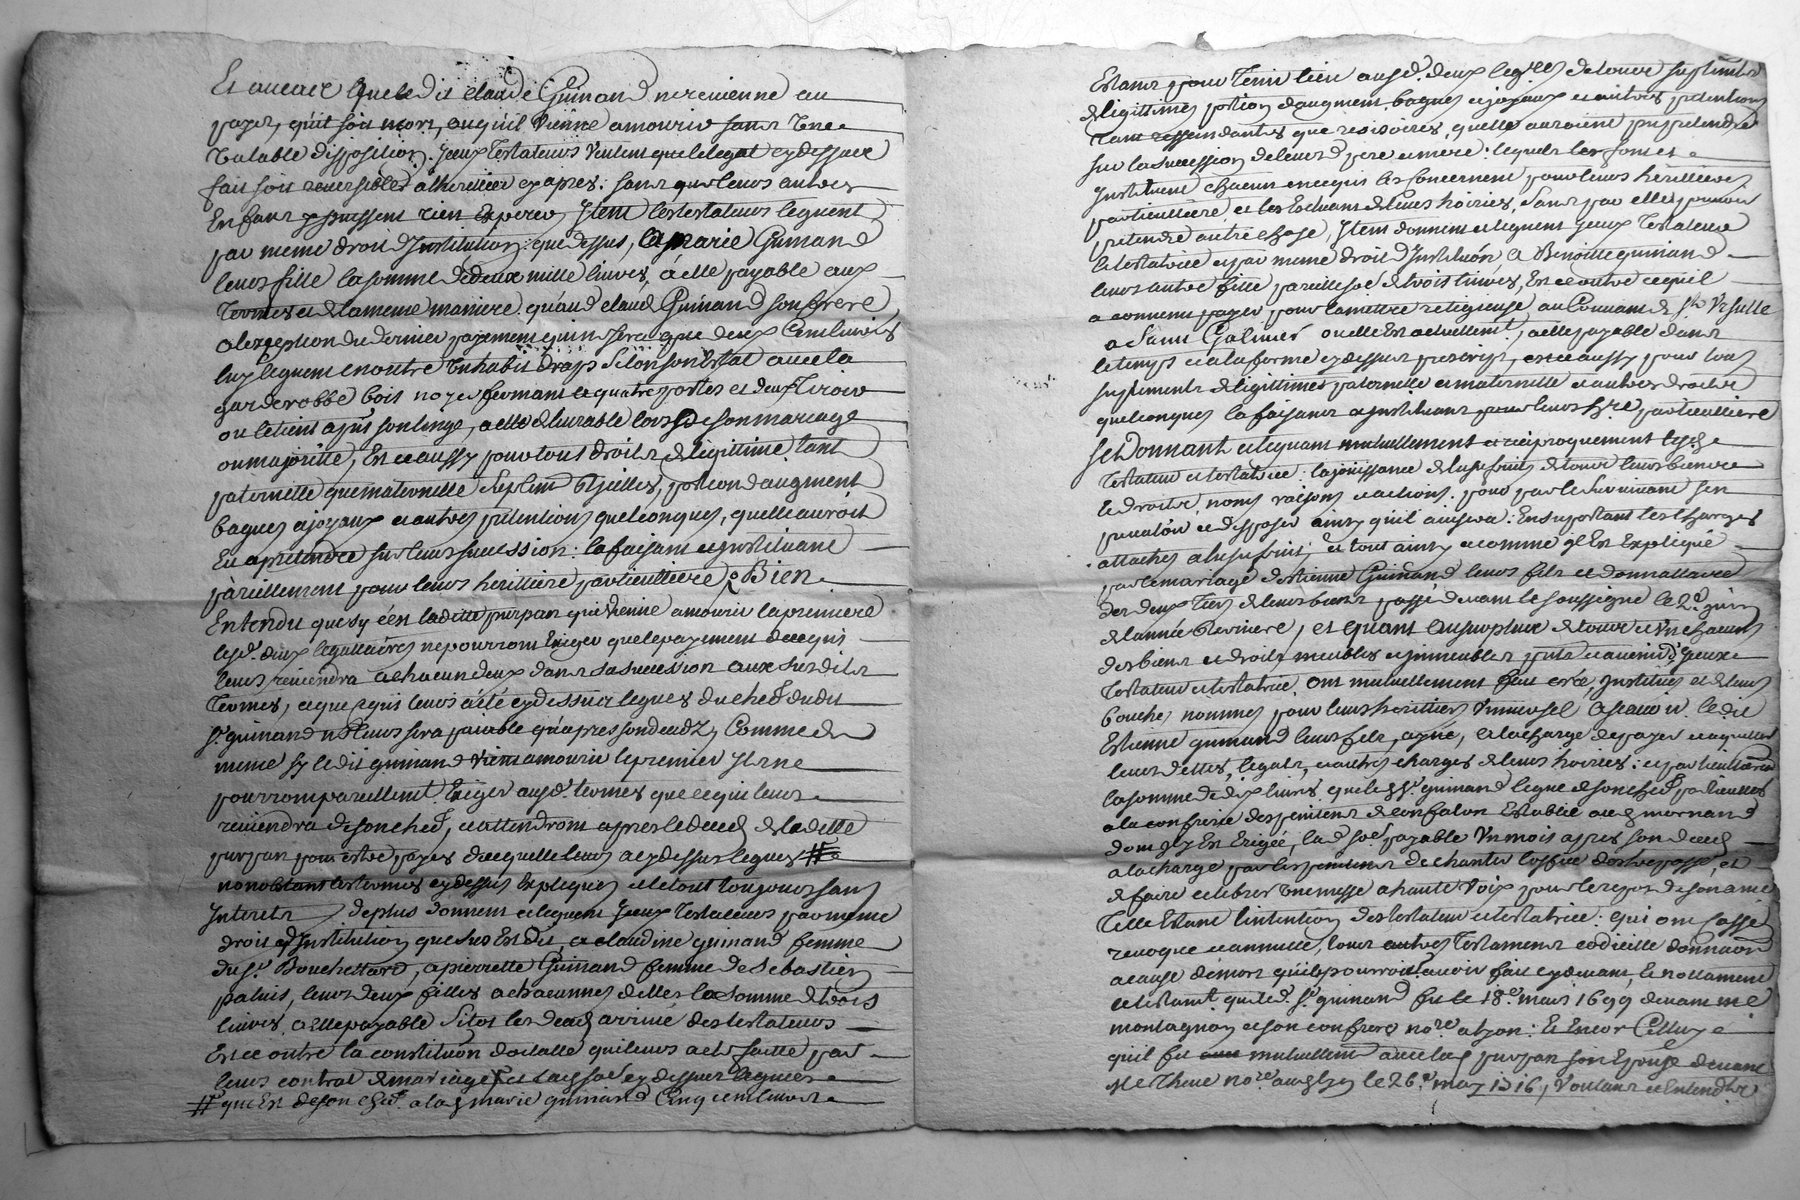 Et aucas que le dit claude Guinand ne revienne au
payer, qu'il soit mort, ou qu'il vienne a mourir sans une
valable disposition. yceux testateurs veulent que le legat cy dessus
fait soit reversible a l'heritier cy apres: sans que leurs autres
Enfans y puissent rien Esperer Item lestestateurs leguent
par meme droit d'Institution que dessus, a marie Guinand
leurs fille la somme de deux mille livres, à elle payable aux
termes et de la meme maniere quaud claude Guinand son frere
al'exception du dernier payement qui ne sera que de cent livres
luy leguent en outre un habit draps selon son Estat avec la
garderobbe bois noyer fermant a quatre portes et deux tiroir
ou letient a pnt son linge, a elle delivrable lors de son mariage
ou majorité, Et ce aussy pour tout droits de legittime tant
paternelle que maternelle suplemt d'Jcelles, portion d'augment
bagues et joyaux et autres pretentions quelconques, quelle auroit
Eu a pretendre sur leurs succession: la faisant et instituant
pareillement pour leurs heritiere particulliere, Bien
Entendu que sy c'est laditte purpan qui vienne a mourir la premiere
lesd. deux legattaires ne pourront Exiger que le payement de ce qui
leurs reviendra a chacun deux dans sa succession aux susdits
termes, et que ce qui leurs a été cy dessus legues du chef dudit
sr. guinand ne leurs sera paiable qu'apres son deceds, Comme de
meme sy ledit guinand vient a mourir le premier Ils ne
pourront pareillemt. Exiger ausd. termes que ce qui leurs
reviendra de son chef, et attendront apres le deceds de laditte
purpan pour estre payes de ce quelle leurs a cy dessus legues #
nonobstant les termes cy dessus Expliques et le tout toujours sans
Interets de plus donnent et leguent yceux testateurs par meme
droit d'Institution que sus Est dit, a claudine guinand femme
du sr. Bouchettard, a pierrette Guinand femme de Sebastien
paluis, leurs deux filles a chacunnes d'elles la somme de trois
livres, a elle payable sitot les deceds arrive des testateurs
Et ce outre la constitution dotalle qui leurs a ete faitte par
leurs contrat de mariage et la ssoe cy dessus leguées
# qui Est de son chef. a lad marie guinand Cinq cent livres
Estant pour tenir lieu ausd. deux legres. de tous suplement
de legittimes portion d'augment bagues et joyaux et autres pretentions
tant rescindantes que rescisoires, quelle auroient pu pretendre
sur la succession de leursd pere et mere: lequels les font et
Instituent chacun en ce qui les concernent pour leurs heritieres
particulliere, et les Excluent de leurs hoiries, sans par elles pouvoir
pretendre autre chose, Item donnent et leguent yceux testateur
et testatrice et par meme droit d'Institution a Benoitte guinand
leurs autre fille pareille soe de trois livres, Et ce outre ce qu'il
a convenu payer pour la mettre religieuse au Couvent de ste Ursulle
a Saint Galmier ou elle Est actuellemt., a elle payable dans
le temps et a la forme cy dessus prescript, et ce aussy pour tous
suplements de legittimes paternelle et maternelle et autres droits
quelconques la faisant et instituant pour leurs hre particulliere
Se Donnant et leguant mutuellement et reciproquement lesd.
testateur et testatrice: la jouissance et usufruit de tous leurs biens
et droits, noms, raisons et actions. pour par le survivant s'en
prevaloir et disposer ainsy qu'il avisera: En suportant les charges
attaches a l'usufruit; et tout ainsy et comme Il Est Expliqué
par le mariage d'estienne Guinand leurs fils et donnattaire
des deux tiers de leurs biens passé devant le soussigne le 2e. juin
de l'année derniere, et quant au surplus de tous et un chacuns
des biens et droits meubles et immeubles pnts et avenirs d'yceux
testateur et testatrice. ont mutuellement fait cree, Institues et de leurs
bouches nommes pour leurs heritiers universel a scavoir ledit
Estienne guinand leurs fils, ayné, a la charge de payer et acquitter
leurs dettes, legats, et autres charges de leurs hoiries: et particulierement
la somme de dix livres que led sr. guinand legue de son chef particullier
a la confrerie des penitens de confalon Establie aud mornand
dom gly En Erigée, lad. soe. payable un mois apres son deceds
a la charge par les penitens de chanter l'office des trepassé, et
de faire celebrer une messe a haute voix pour le repos de son ame
telle Estant l'intention des testateur et testatrice: qui ont cassé
revoqué et annullé, tous autres testaments codicille donnation
a cause de mort qu'ils pourroit avoir fait cy devant, Et notament
le testamt. que led. sr. guinand fit le 18e. mars 1699 devant me
montagnon et son confrere nore. a lyon: Et Encor Celluy
qu'il fit mutuellemt avec lad purpan son Epouse devant
me Thene nore aud lieu le 26e. may 1716, voulant et Entendt. que